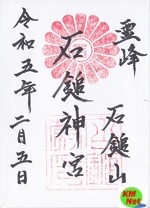 霊峰
石鎚山
石鎚神宮
令和五年二月五日
KM
Net